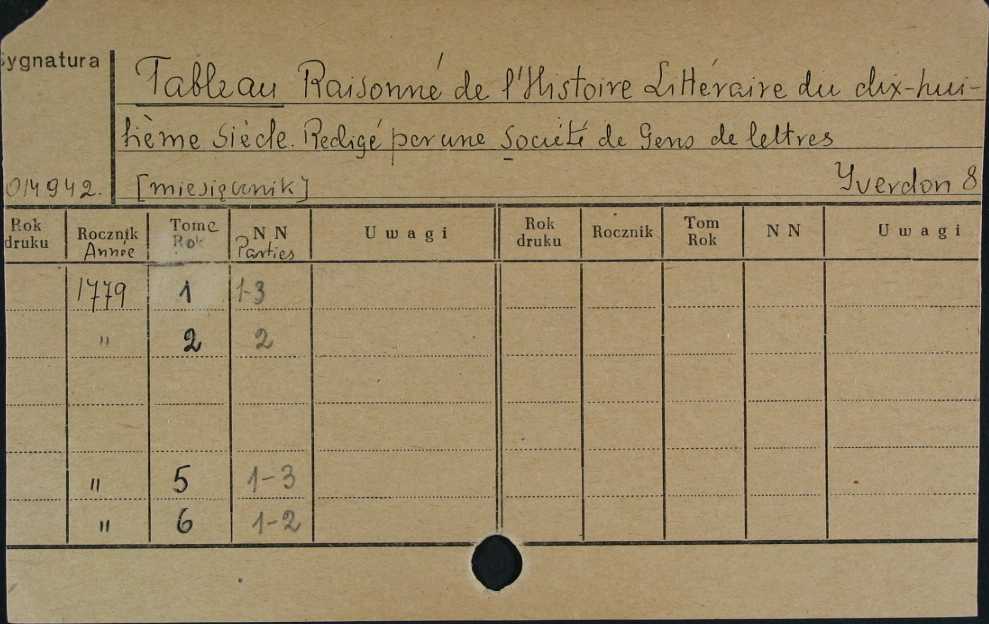 Sygnatura
Tableau Raisonné de l'Histoire Littéraire du dix-hui-
tième Siècle. Redigé par une Société de Gens de lettres
014942. [miesięcznik] Yverdon 8
Rok druku Rocznik Année Tome Rok NN Parties Uwagi Rok druku Rocznik Tom Rok NN Uwagi
1779 1 1-3
" 2 2
" 5 1-3
" 6 1-2